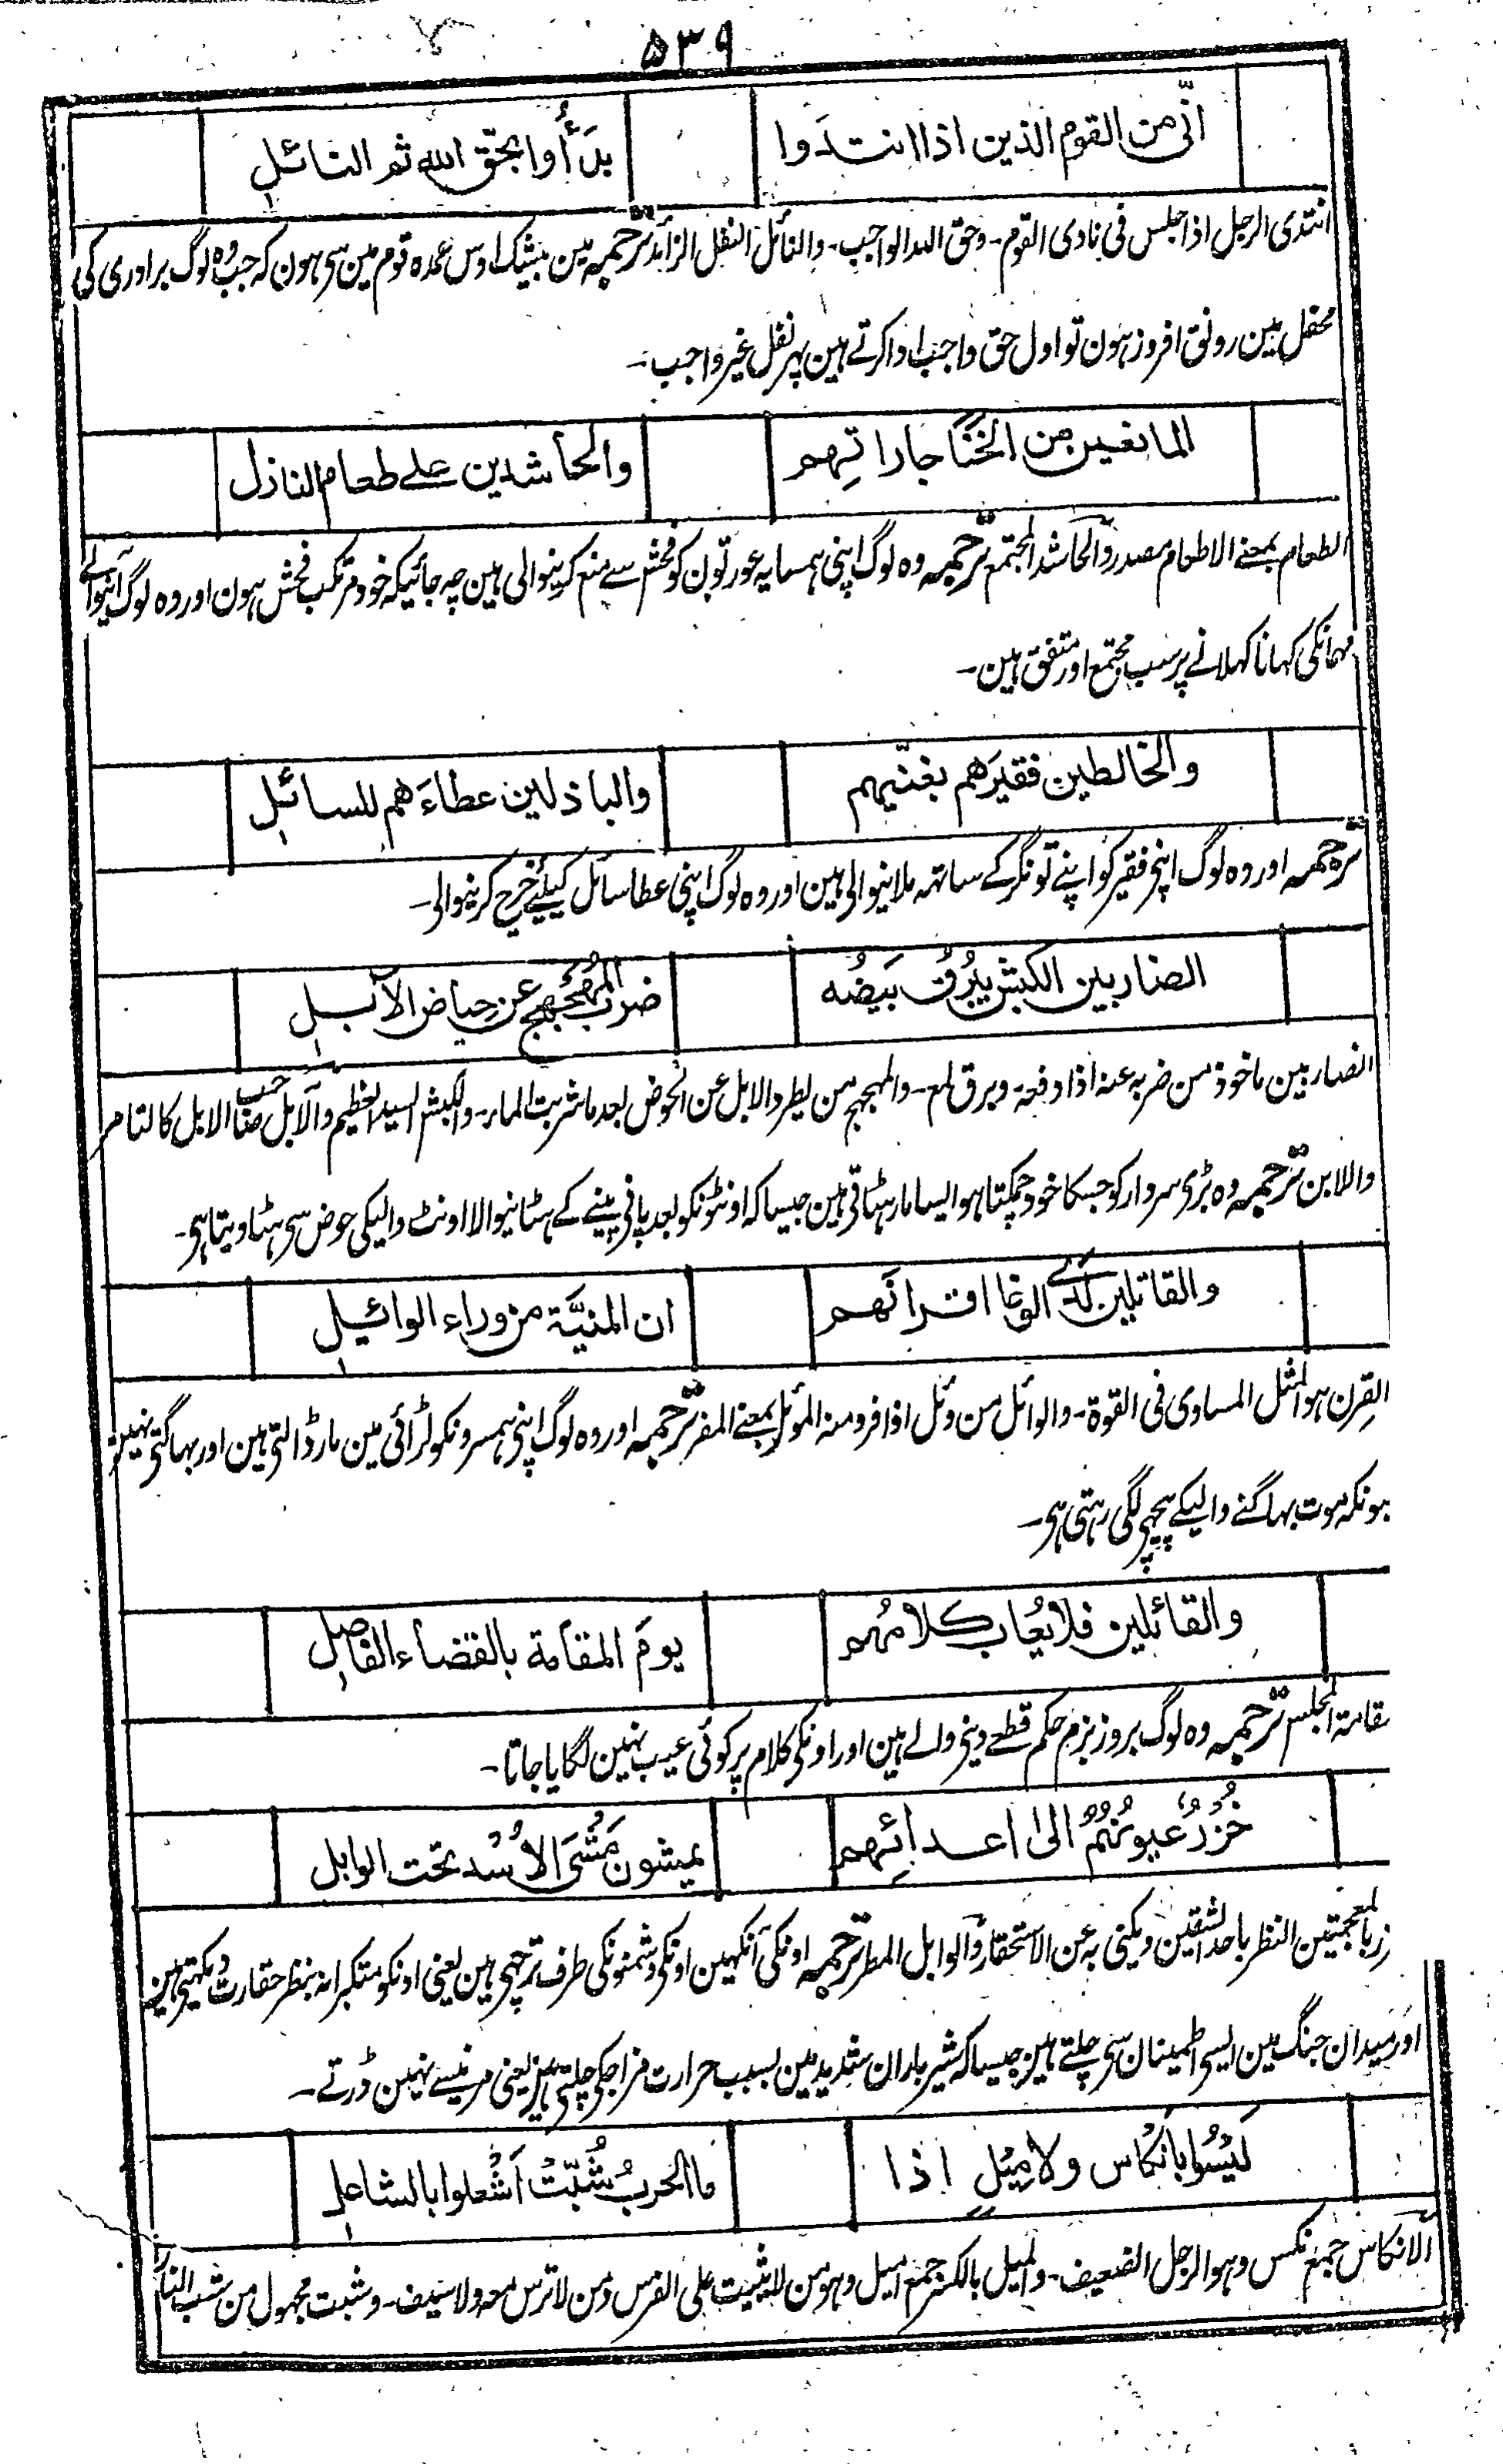 ۵۳۹
انّي من القوم الذين اذا انتدَوا بدَأُوا بحقّ الله ثم النائلِ
انتدی الرجل اذا جلس فی نادی القوم۔ وحق اللہ الواجب۔ والنائل النفل الزائد ترجمہ مین بیشک اوس عمدہ قوم مین سی ہون کہ جب وہ لوگ برادری کی
محفل مین رونق افروز ہون تو اول حق واجب ادا کرتے ہین پہر نفل غیر واجب۔
المانعين من الخَنَا جاراتِهم والحاشدين على طعام النازل
الطعام بمعنے الاطعام مصدر والحاشد المجتمع ترجمہ وہ لوگ اپنی ہمسایہ عورتون کو فحش سے منع کرنیوالی ہین چہ جائیکہ خود مرتکب فحش ہون اور وہ لوگ آنیوالے
مہمانکی کہانا کہلانے پر سب مجتمع اور متفق ہین۔
والخالطين فقيرَهم بغنيّهم والباذلين عطاءَهم للسائلِ
ترجمہ اور وہ لوگ اپنی فقیر کو اپنے تونگر کے ساتہہ ملانیوالی ہین اور وہ لوگ اپنی عطا سائل کیلیے خرچ کرنیوالی۔
الضاربين الكبش يبرُق بَيضُه ضربَ المُهَجْهِج عن حياض الآبلِ
الضاربین ماخوذ من ضربہ عنہ اذا دفعہ۔ وبرق لمع۔ والمہجہج من یطرد الابل عن الحوض بعد ما شربت الماء۔ والکبش السید العظیم والآبل صاحب الابل کالتامر
واللابن ترجمہ وہ بڑی سردار کو جسکا خود چمکتا ہو ایسا مار ہٹاتی ہین جیسا کہ اونٹونکو بعد پانی پینے کے ہٹانیوالا اونٹ والیکی حوض سی ہٹا دیتا ہی۔
والقاتلين لَدَى الوغا اقرانَهم ان المنيَّة من وراء الوائلِ
القِرن ہو المثل المساوی فی القوة۔ والوائل من وئل اذا فر ومنہ الموئل بمعنے المفر ترجمہ اور وہ لوگ اپنی ہمسرونکو لڑائی مین مار ڈالتی ہین اور بہاگتی نہین
یونکہ موت بہاگنے والیکے پیچھی لگی رہتی ہی۔
والقائلين فلا يُعاب كلامُهم يومَ المقامة بالقضاء الفاصلِ
مقامة المجلس ترجمہ وہ لوگ بروز بزم حکم قطعے دینی والے ہین اور اونکی کلام پر کوئی عیب نہین لگایا جاتا۔
خُزرٌ عيونُهُمُ الى اعدائِهم يمشون مَشْىَ الاُسْد تحت الوابل
زر بالمعجمتین النظر باحد الشقین ویکنی بہ عن الاستحقار والوابل المطر ترجمہ اونکی آنکہین اونکی دشمنونکی طرف ترچہی ہین یعنی اونکو متکبرانہ بنظر حقارت دیکہتی ہین
اور میدان جنگ مین ایسی اطمینان سی چلتے ہین جیسا کہ شیر باران شدید مین بسبب حرارت مزاجکی چلتی ہین یعنی مرنیسے نہین ڈرتے۔
لَيسُوا بانكاس ولا مِيلٍ اذا ما الحربُ شُبّتْ اَشْعلوا بالشاعلِ
الانکاس جمع نکس وہو الرجل الضعیف۔ والمیل بالکسر جمع امیل وہو من لا یثبت علی الفرس ومن لا ترس معہ ولا سیف۔ وشبت مجہول من شب النار